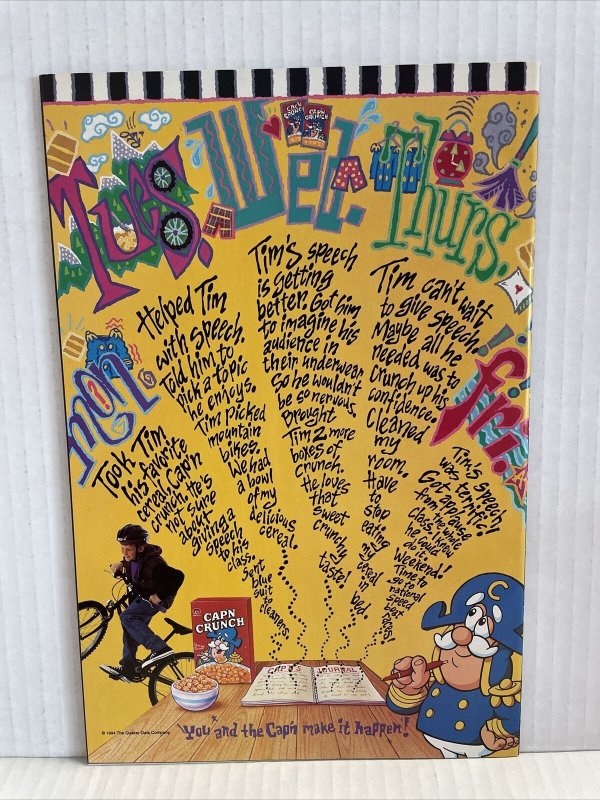 Mon.
Took Tim
his favorite
cereal Cap'n
Crunch. He's
not sure
about
giving a
speech
to his
class.
Sent
blue
suit
to
cleaners.
Tues.
Helped Tim
with speech.
Told him to
pick a topic
he enjoys.
Tim picked
mountain
bikes.
We had
a bowl
of my
delicious
cereal.
Wed.
CAP'N
CRUNCH
CAP'N
CRUNCH
Tim's speech
is getting
better. Got him
to imagine his
audience in
their underwear
so he wouldn't
be so nervous.
Brought
Tim 2 more
boxes of
Crunch.
He loves
that
sweet
crunchy
taste!
Thurs.
Tim can't wait
to give speech.
Maybe all he
needed was to
crunch up his
confidence.
Cleaned
my
room.
Have
to
stop
eating
my
cereal
in
bed.
Fri.
Tim's speech
was terrific!
Got applause
from the whole
class. I knew
he could
do it.
Weekend!
Time to
go to
national
speed
boat
races!
CAPN
CRUNCH
CAP'N'S JOURNAL
C
© 1994 The Quaker Oats Company
You and the Cap'n make it happen!